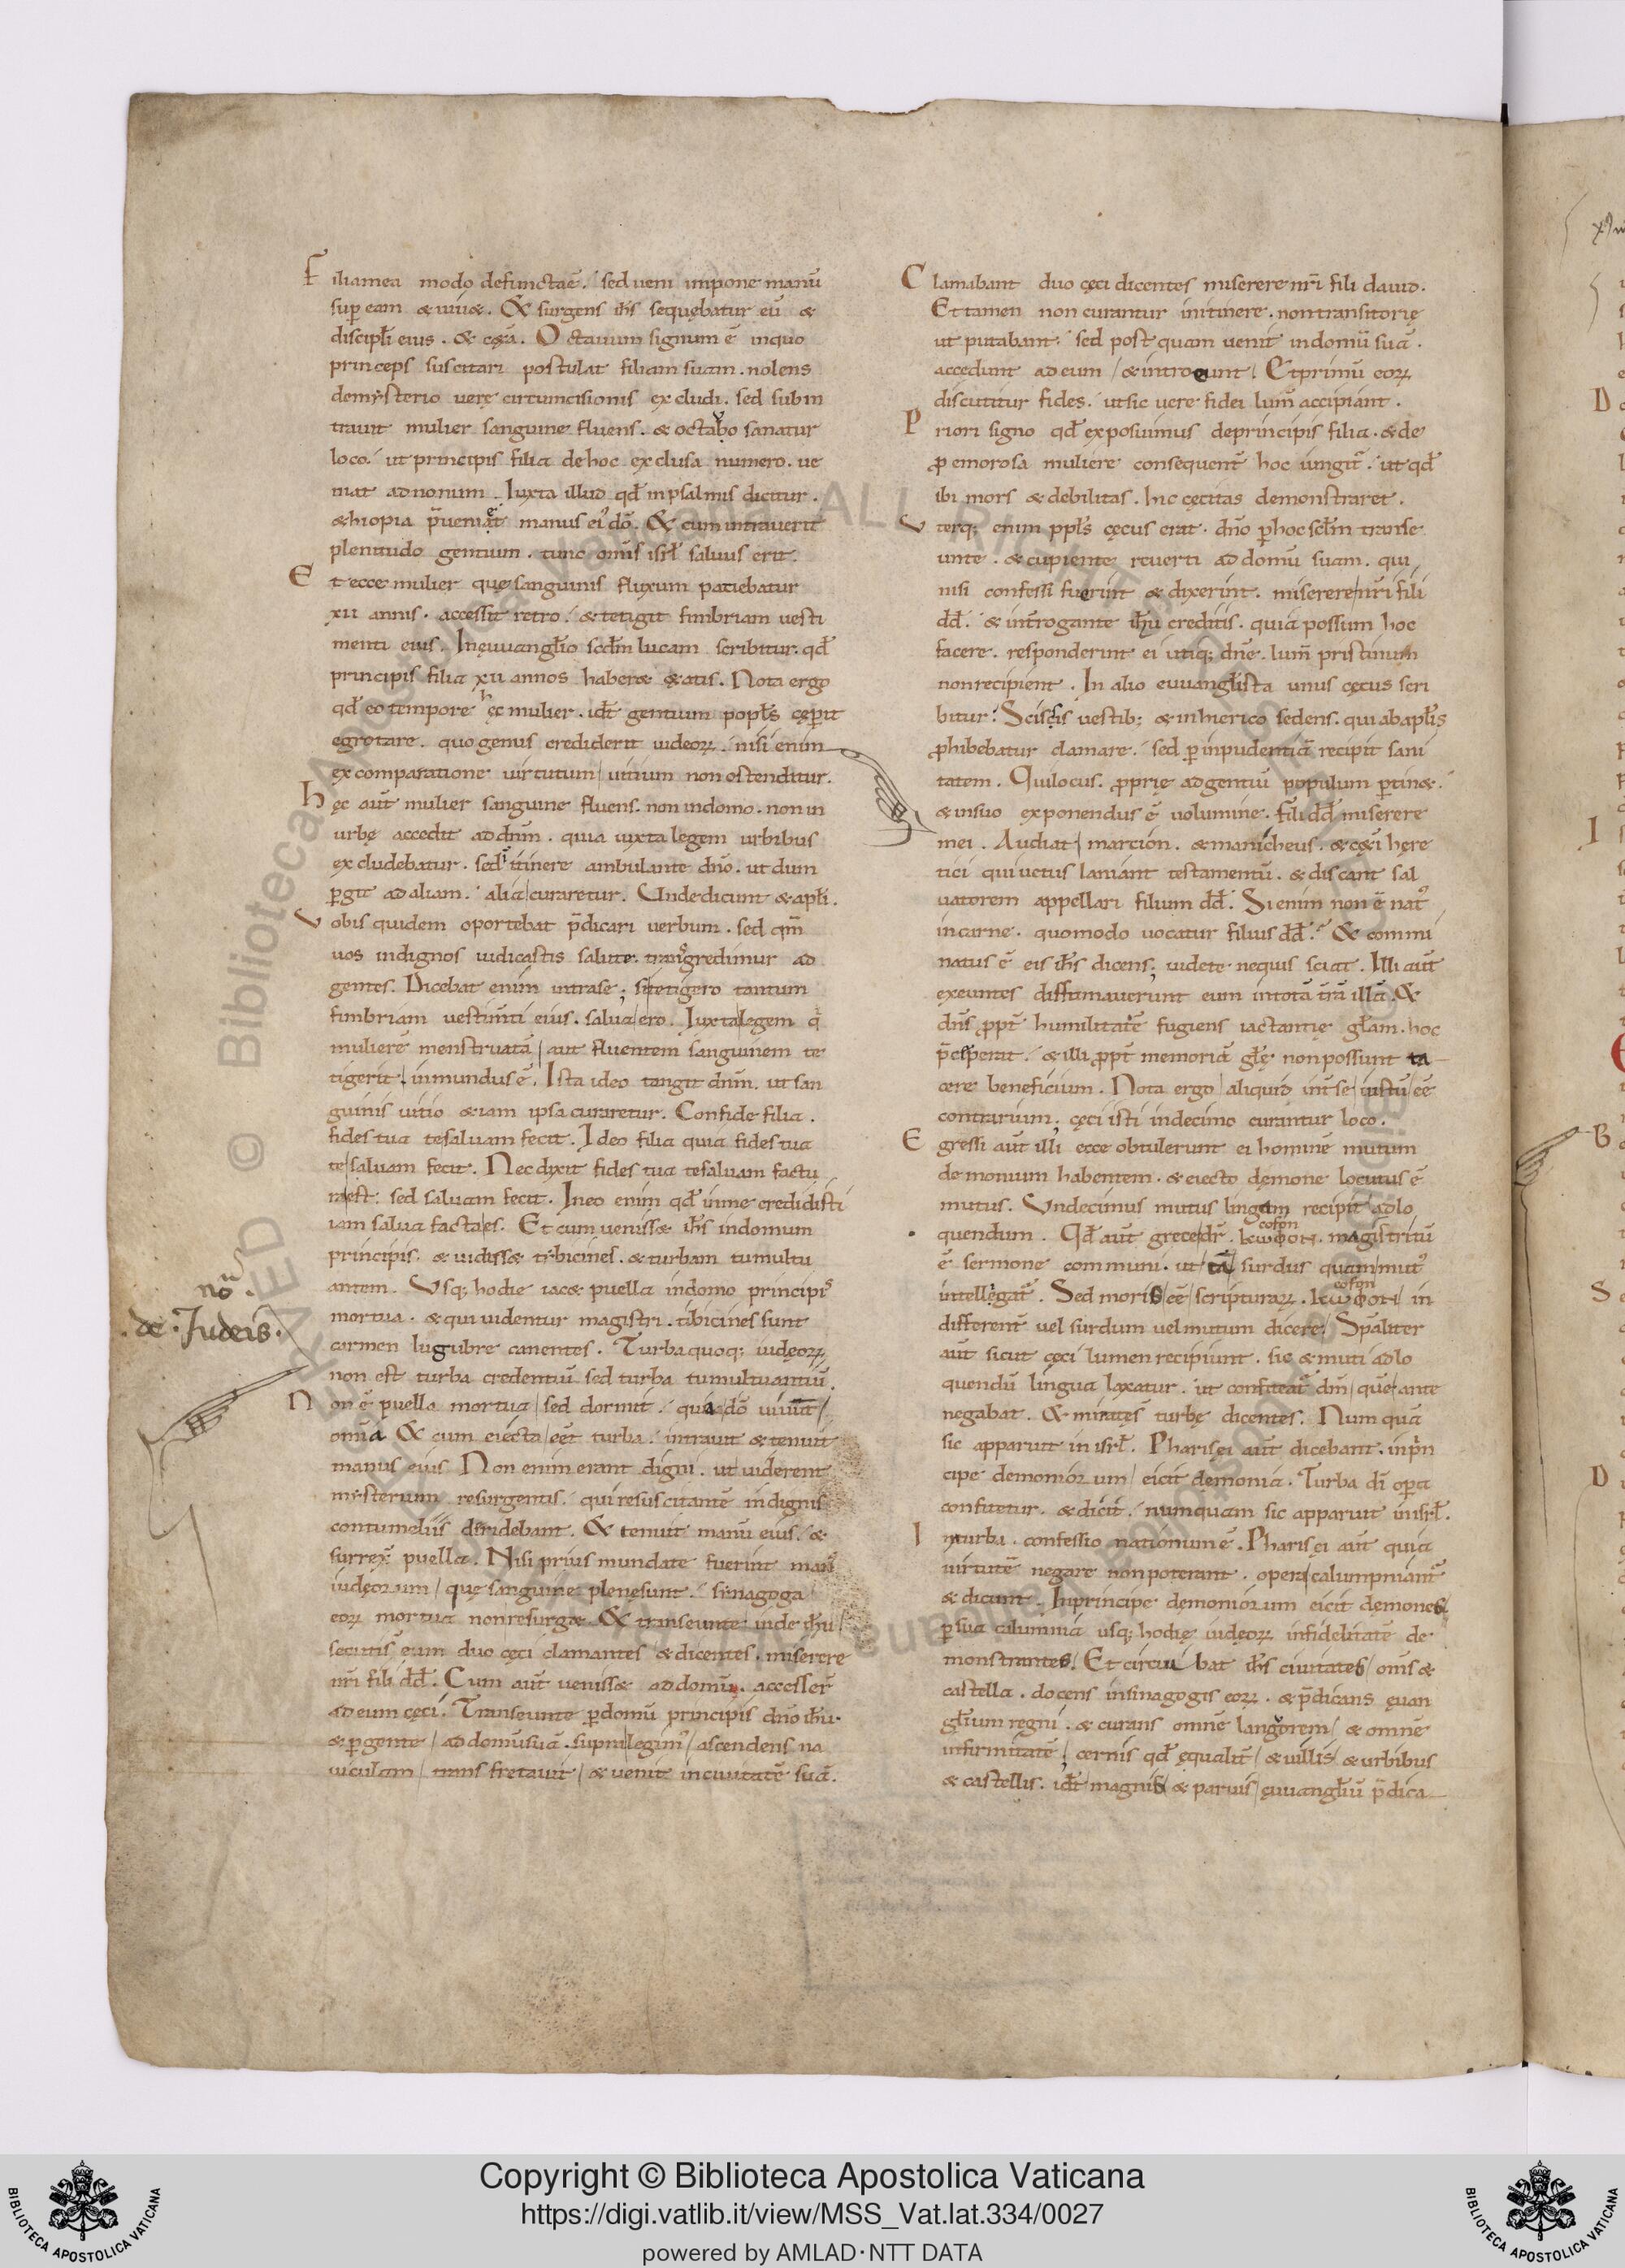 Filiamea modo defunctaē. sed ueni impone manū
sup̄ eam & uiuæ. & surgens ih̄s sequebatur eū &
discipl̄i eius. & cęt̄a. Octauum signum ē inquo
princeps suscitari postulat filiam suam. nolens
demẏsterio uerę circumcisionis excludi. sed subin
trauit mulier sanguine fluens. & octabo sanatur
loco. ut principis filia de hoc exclusa numero. ue
niat ad nonum. Iuxta illud qđ inpsalmis dicitur.
æthiopia p̄ueniæt manus ei' dō. & cum intrauerit
plenitudo gentium. tunc omīs isrł saluus erit.
Et ecce mulier quę sanguinis fluxum patiebatur
xıı annis. accessit retro. & tetigit fimbriam uesti
menti eius. In ęuuangl̄io scđm lucam scribitur. qđ
principis filia xıı annos haberæ ętatis. Nota ergo
qđ eo tempore hęc mulier. idē gentium popl̄s cęp̄it
egrotare. quo genus crediderit iudeoꝝ. nisi enim
ex comparatione uirtutum / uitium non ostenditur.
hęc aūt mulier sanguine fluens. non indomo. non in
urbę accedit ad dn̄m. quia iuxta legem urbibus
excludebatur. sed itinere ambulante dn̄o. ut dum
p̄git ad aliam. alia / curaretur. Unde dicunt & apl̄i.
Vobis quidem oportebat p̄dicari uerbum. sed qm̄
uos indignos iudicastis salute. transgredimur ad
gentes. Dicebat enim intra se; si tetigero tantum
fimbriam uestimn̄ti eius. salua / ero. Iuxta legem q
mulierē menstruatā / aut fluentem sanguinem te
tigerit / inmundus ē. Ista ideo tangit dn̄m. ut san
guinis uitio & iam ipsa curaretur. Confide filia.
fides tua te saluam fecit. Ideo filia quia fides tua
te / saluam fecit. Nec dixit fides tua te saluam factu
ra / est: sed saluam fecit. In eo enim qđ in me credidisti
iam salua facta / es. Et cum uenissæ ih̄s indomum
principis. & uidissæ tibicines. & turbam tumultu
antem. Vsq; hodie iacæ puella indomo principis
mortua. & qui uidentur magistri. tibicines sunt
carmen lugubre canentes. Turba quoq; iudęoꝝ
non est turba credentiū sed turba tumultuantiū.
nō.
.de.Iudeis.
Non ē puella mortua / sed dormit. quia dō uiuūt /
omīa & cum eiecta / eēt turba. intrauit & tenuit
manus eius. Non enim erant digni. ut uiderent
mẏsterium resurgentis. qui resuscitantē indignis
contumeliis deridebant. & tenuit manū eius. &
surrex̄ puella. Nisi prius mundate fuerint man'
iudęorum / quę sanguine plenę sunt. sinagoga
eoꝝ mortua non resurgæ & transeunte inde ih̄u /
secuti s̄ eum duo cęci clamantes & dicentes. miserere
nr̄i fili dđ. Cum aūt uenissæ ad domū. accesser̄
ad eum cęci. Transeunte p̄ domū principis dn̄o ih̄u.
& p̄gente / ad domū suā. supra legim' / ascendens na
uiculam / trans fretauit / & uenit inciuitatē suā.
Clamabant duo cęci dicentes miserere nr̄i fili dauid.
Et tamen non curantur initinere. non transitorię
ut putabant: sed post quam uenit indomū suā.
accedunt ad eum / & introeunt / Et primū eoꝝ
discutitur fides. ut sic uere fidei lum̄ accipiant.
Priori signo qđ exposuimus de principis filia. & de
p̄ emorosa muliere consequent̄ hoc iungit̄. ut qđ
ibi mors & debilitas. hic cęcitas demonstraret.
Vterq; enim ppl̄s cęcus erat. dn̄o p̄ hoc scl̄m transe
unte. & cupiente reuerti ad domū suam. qui
nisi confessi fuerint & dixerint. miserere / nr̄i fili
dđ. & int̄rogante ih̄u creditis. quia possum hoc
facere. responderint ei utiq; dn̄e. lum̄ pristinum
non recipient. In alio euuangl̄ista unus cęcus scri
bitur. Scissis uestib; & in hierico sedens. qui ab apl̄is
p̄hibebatur clamare. sed p̄ inpudentiā recipit sani
tatem. Qui locus. p̄prię ad gentiū populum p̄tinæ.
& in suo exponendus ē uolumine. fili dđ miserere
mei. Audiat / marcion. & manicheus. & cęt̄i hęre
tici qui uetus laniant testamentū. & discant sal
uatorem appellari filium dđ. Si enim non ē nat'
in carne. quomodo uocatur filius dđ. & commi
natus ē eis ih̄s dicens; uidete nequis sciat. Illi aūt
exeuntes diffamauerunt eum in totā t̄rā illā. &
dn̄s p̄pt̄ humilitatē fugiens iactantię gl̄am. hoc
p̄ceperat. & illi p̄pt̄ memoriā gl̄ę non possunt ta
cere beneficium. Nota ergo / aliquid int̄ se / iustū / eē
contrarium; cęci isti indecimo curantur loco.
Egressi aūt illi ecce obtulerunt ei hominē mutum
demonium habentem. & eiecto dęmone locutus ē
mutus. Vndecimus mutus linguam recipit ad lo
quendum. Qđ aūt grece / dr̄. κωφον. magis tritū
cofon
ē sermone communi. ut tā / surdus quam / mut'
intellegat̄. Sed moris / eē / scripturaꝝ. κωφον / in
cofon
different̄ uel surdum uel mutum dicere / Sp̄aliter
aūt sicut cęci lumen recipiunt. sic & muti ad lo
quendū lingua laxatur. ut confiteat̄ dn̄m / quē / ante
negabat. & mirātęs turbę dicentes. Num quā
sic apparuit in isrł. Pharisęi aūt dicebant. in prin
cipe demoniorum / eicit demonia. Turba dī op̄a
confitetur. & dicit. numquam sic apparuit in isrł.
In turba. confessio nationum ē. Pharisęi aūt quia
uirtutē negare non poterant. opera / calumpniant̄
& dicunt. In principe dęmoniorum eicit demones
p̄ sua calumnia usq; hodię iudęoꝝ infidelitatē de
monstrantes. Et circuibat ih̄s ciuitates / omīs &
castella. docens insinagogis eoꝝ. & p̄dicans ęuan
gl̄ium regni. & curans omnē langorem / & omnē
infirmitatē; cernis qđ ęqualit̄ / & uillis / & urbibus
& castellis. idē / magnis / & paruis / ęuuangl̄iū p̄dica
Copyright © Biblioteca Apostolica Vaticana
https://digi.vatlib.it/view/MSS_Vat.lat.334/0027
powered by AMLAD·NTT DATA
BIBLIOTECA APOSTOLICA VATICANA
BIBLIOTECA APOSTOLICA VATICANA